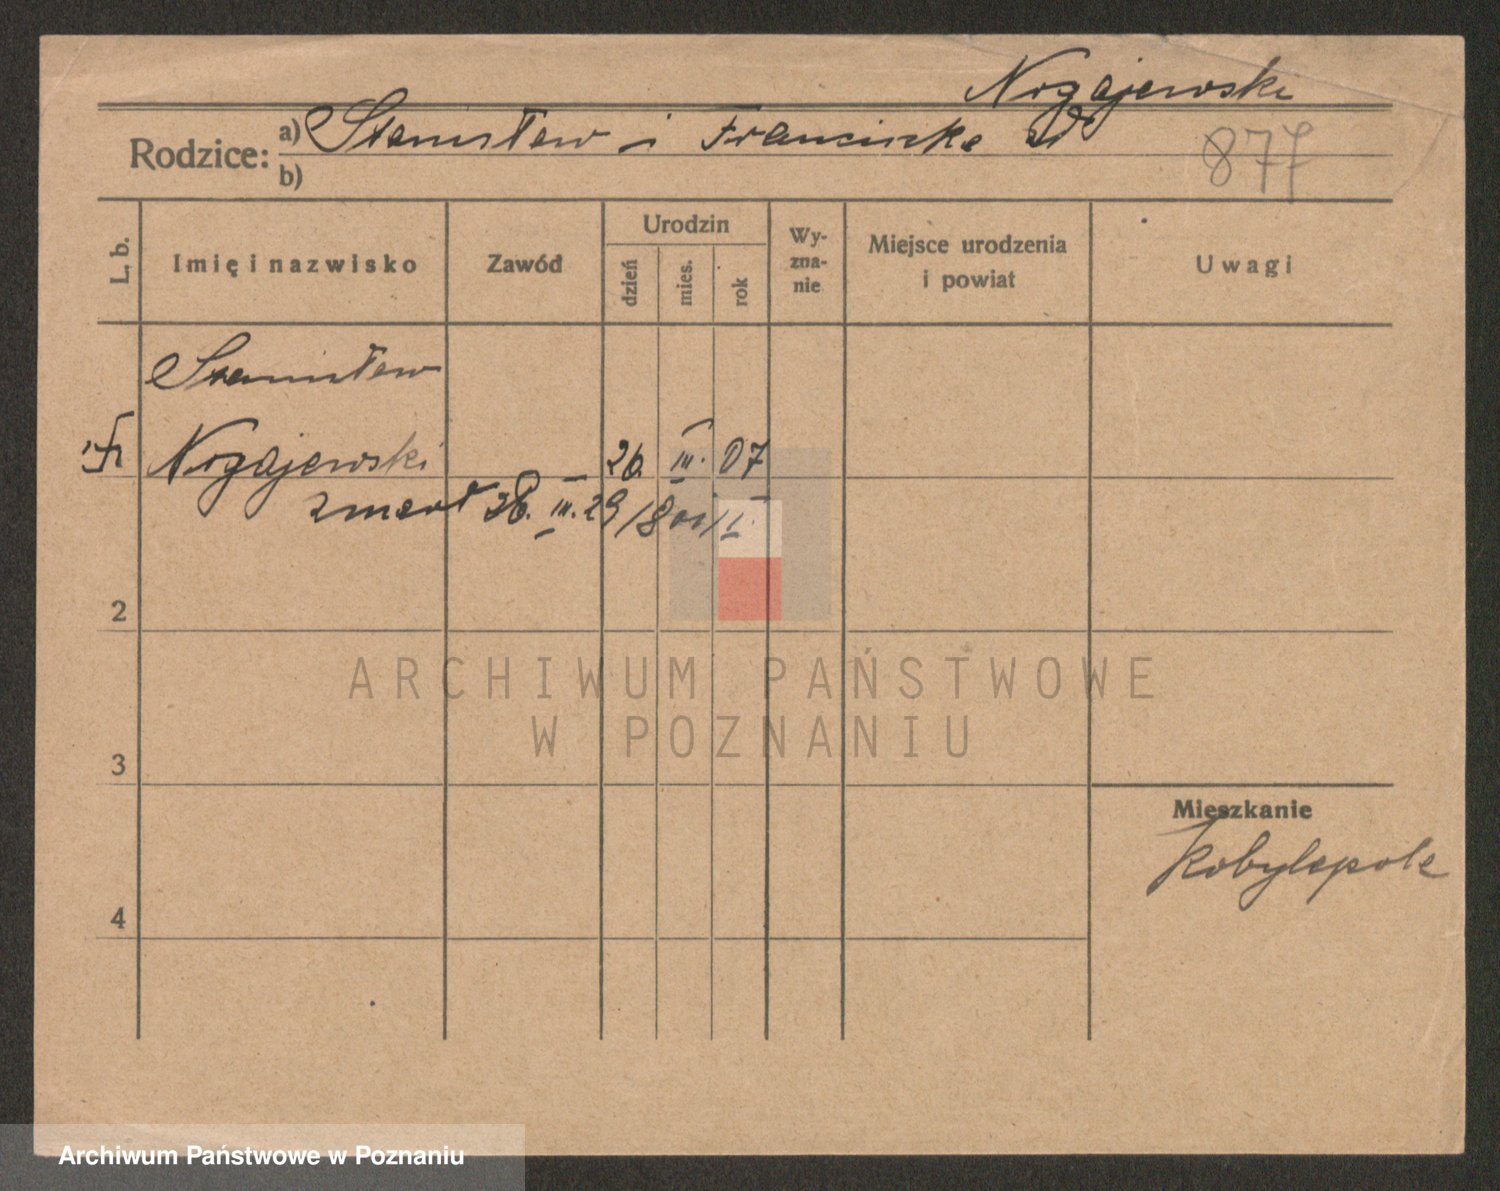 Nogajewski
Rodzice: a) Stanisław i Franciszka
b)
877
L. b.
Imię i nazwisko
Zawód
Urodzin
dzień
mies.
rok
Wy-
zna-
nie
Miejsce urodzenia
i powiat
Uwagi
Stanisław
Nogajewski 26. III. 07
zmarł 28. III. 29
2
3
4
Mieszkanie
Kobylepole
ARCHIWUM PAŃSTWOWE
W POZNANIU
Archiwum Państwowe w Poznaniu